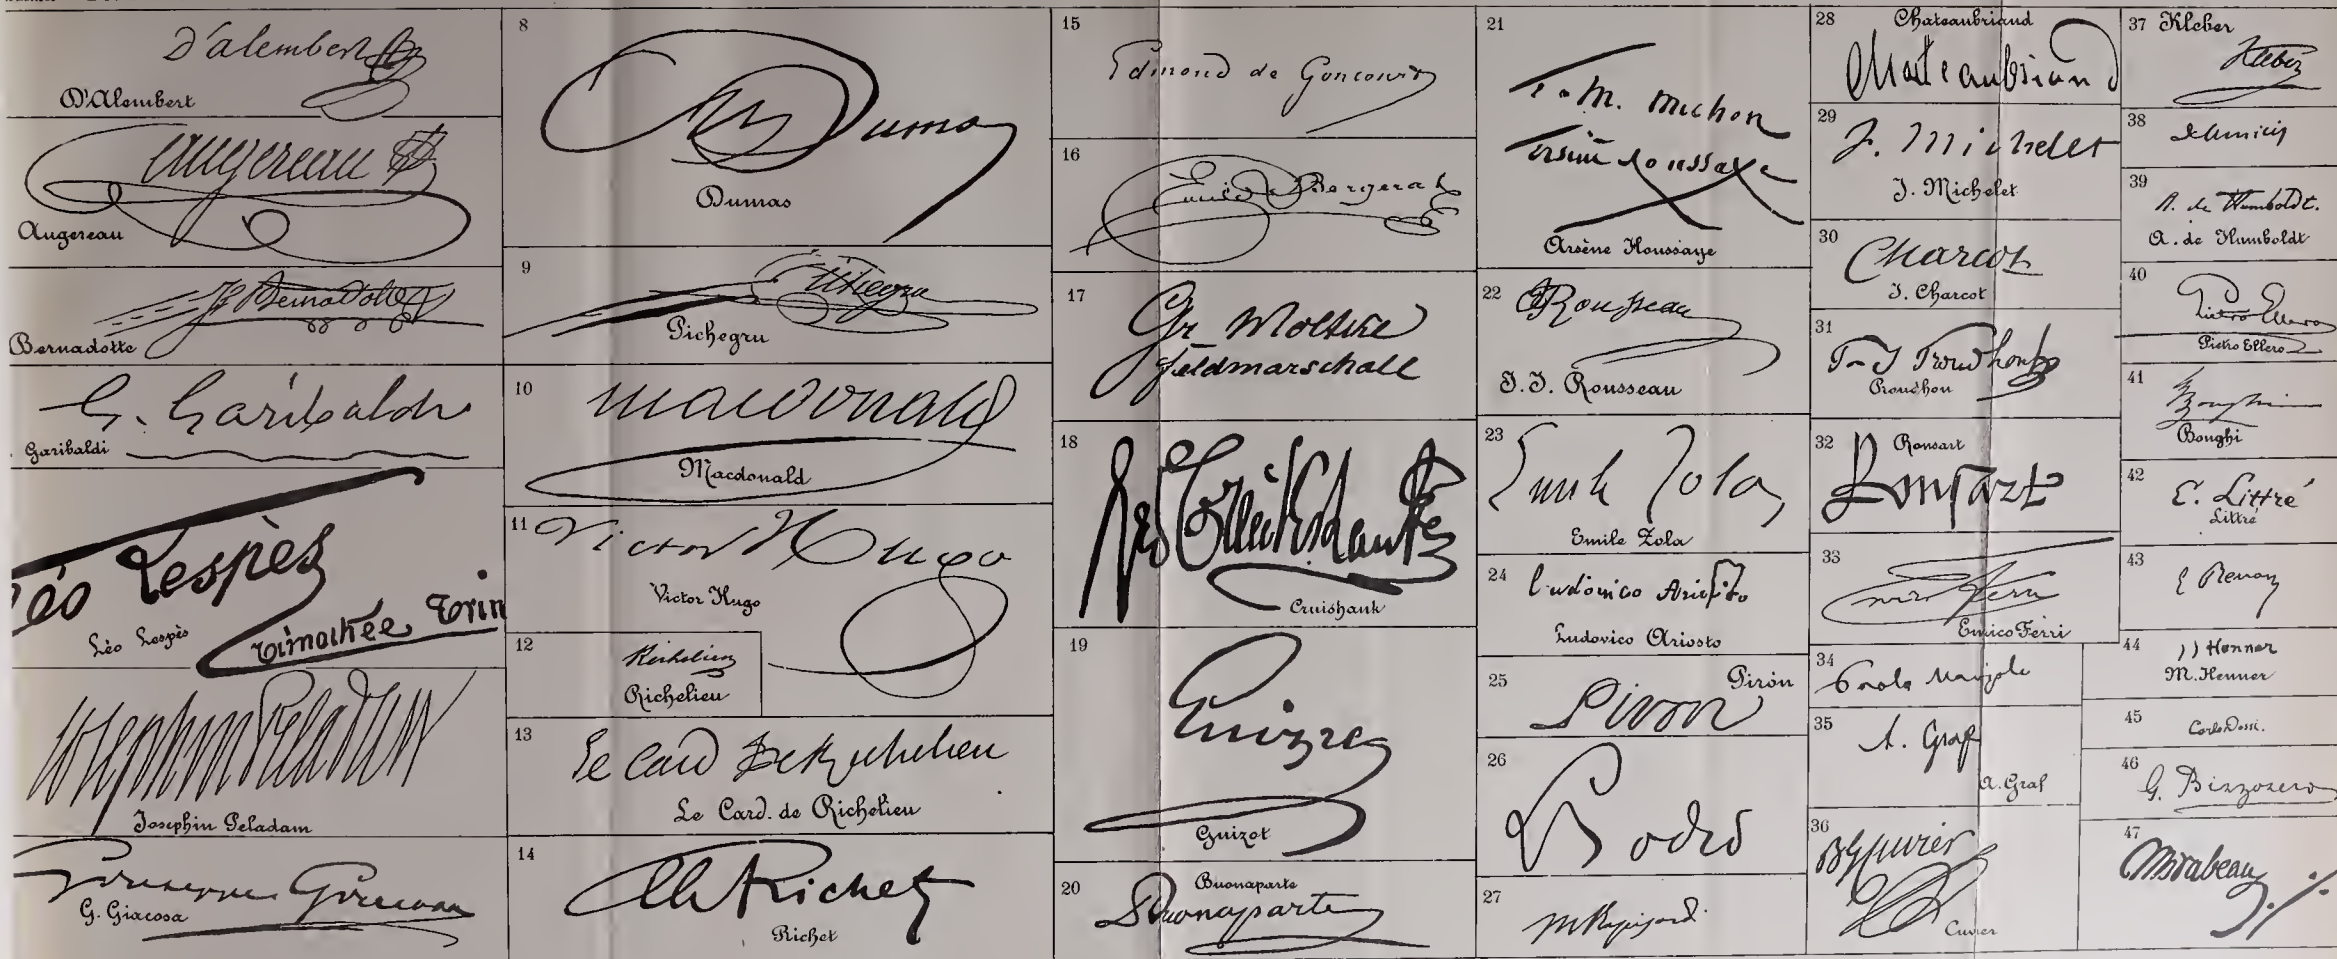 D'alembert
D'Alembert
augereau
Augereau
Bernadotte
Bernadotte
G. Garibaldi
Garibaldi
Léo Lespès
Timothée Trim
Léo Lespès
Josephin Peladan
Josephin Peladam
Giuseppe Giacosa
G. Giacosa
8
Dumas
Dumas
9
Pichegru
Pichegru
10
macdonald
Macdonald
11
Victor Hugo
Victor Hugo
12
Richelieu
Richelieu
13
Le Card de Richelieu
Le Card. de Richelieu
14
Ch Richet
Richet
15
Edmond de Goncourt
16
Emile Bergerat
17
Gr Moltke
Feldmarschall
18
Geo Cruikshank
Cruishank
19
Guizot
Guizot
20
Buonaparte
Buonaparte
21
T. M. Michon
Arsène Houssaye
Arsène Houssaye
22
JJRousseau
J. J. Rousseau
23
Emile Zola
Emile Zola
24
Ludovico Ariosto
Ludovico Ariosto
25
Piron
Piron
26
Bodio
27
M Rapisardi
28
Chateaubriand
Chateaubriand
29
J. Michelet
J. Michelet
30
Charcot
J. Charcot
31
P-J Proudhon
Proudhon
32
Ronsart
Ronsart
33
Enrico Ferri
Enrico Ferri
34
Paola
35
A. Graf
A. Graf
36
Cuvier
Cuvier
37 Kleber
Kleber
38
De Amicis
39
A. de Humboldt.
A. de Humboldt
40
Pietro Ellero
Pietro Ellero
41
Bonghi
Bonghi
42
E. Littré
Littré
43
E Renan
44
JJ Henner
M. Henner
45
Carlo Dossi.
46
G. Bizzozero
47
Mirabeau